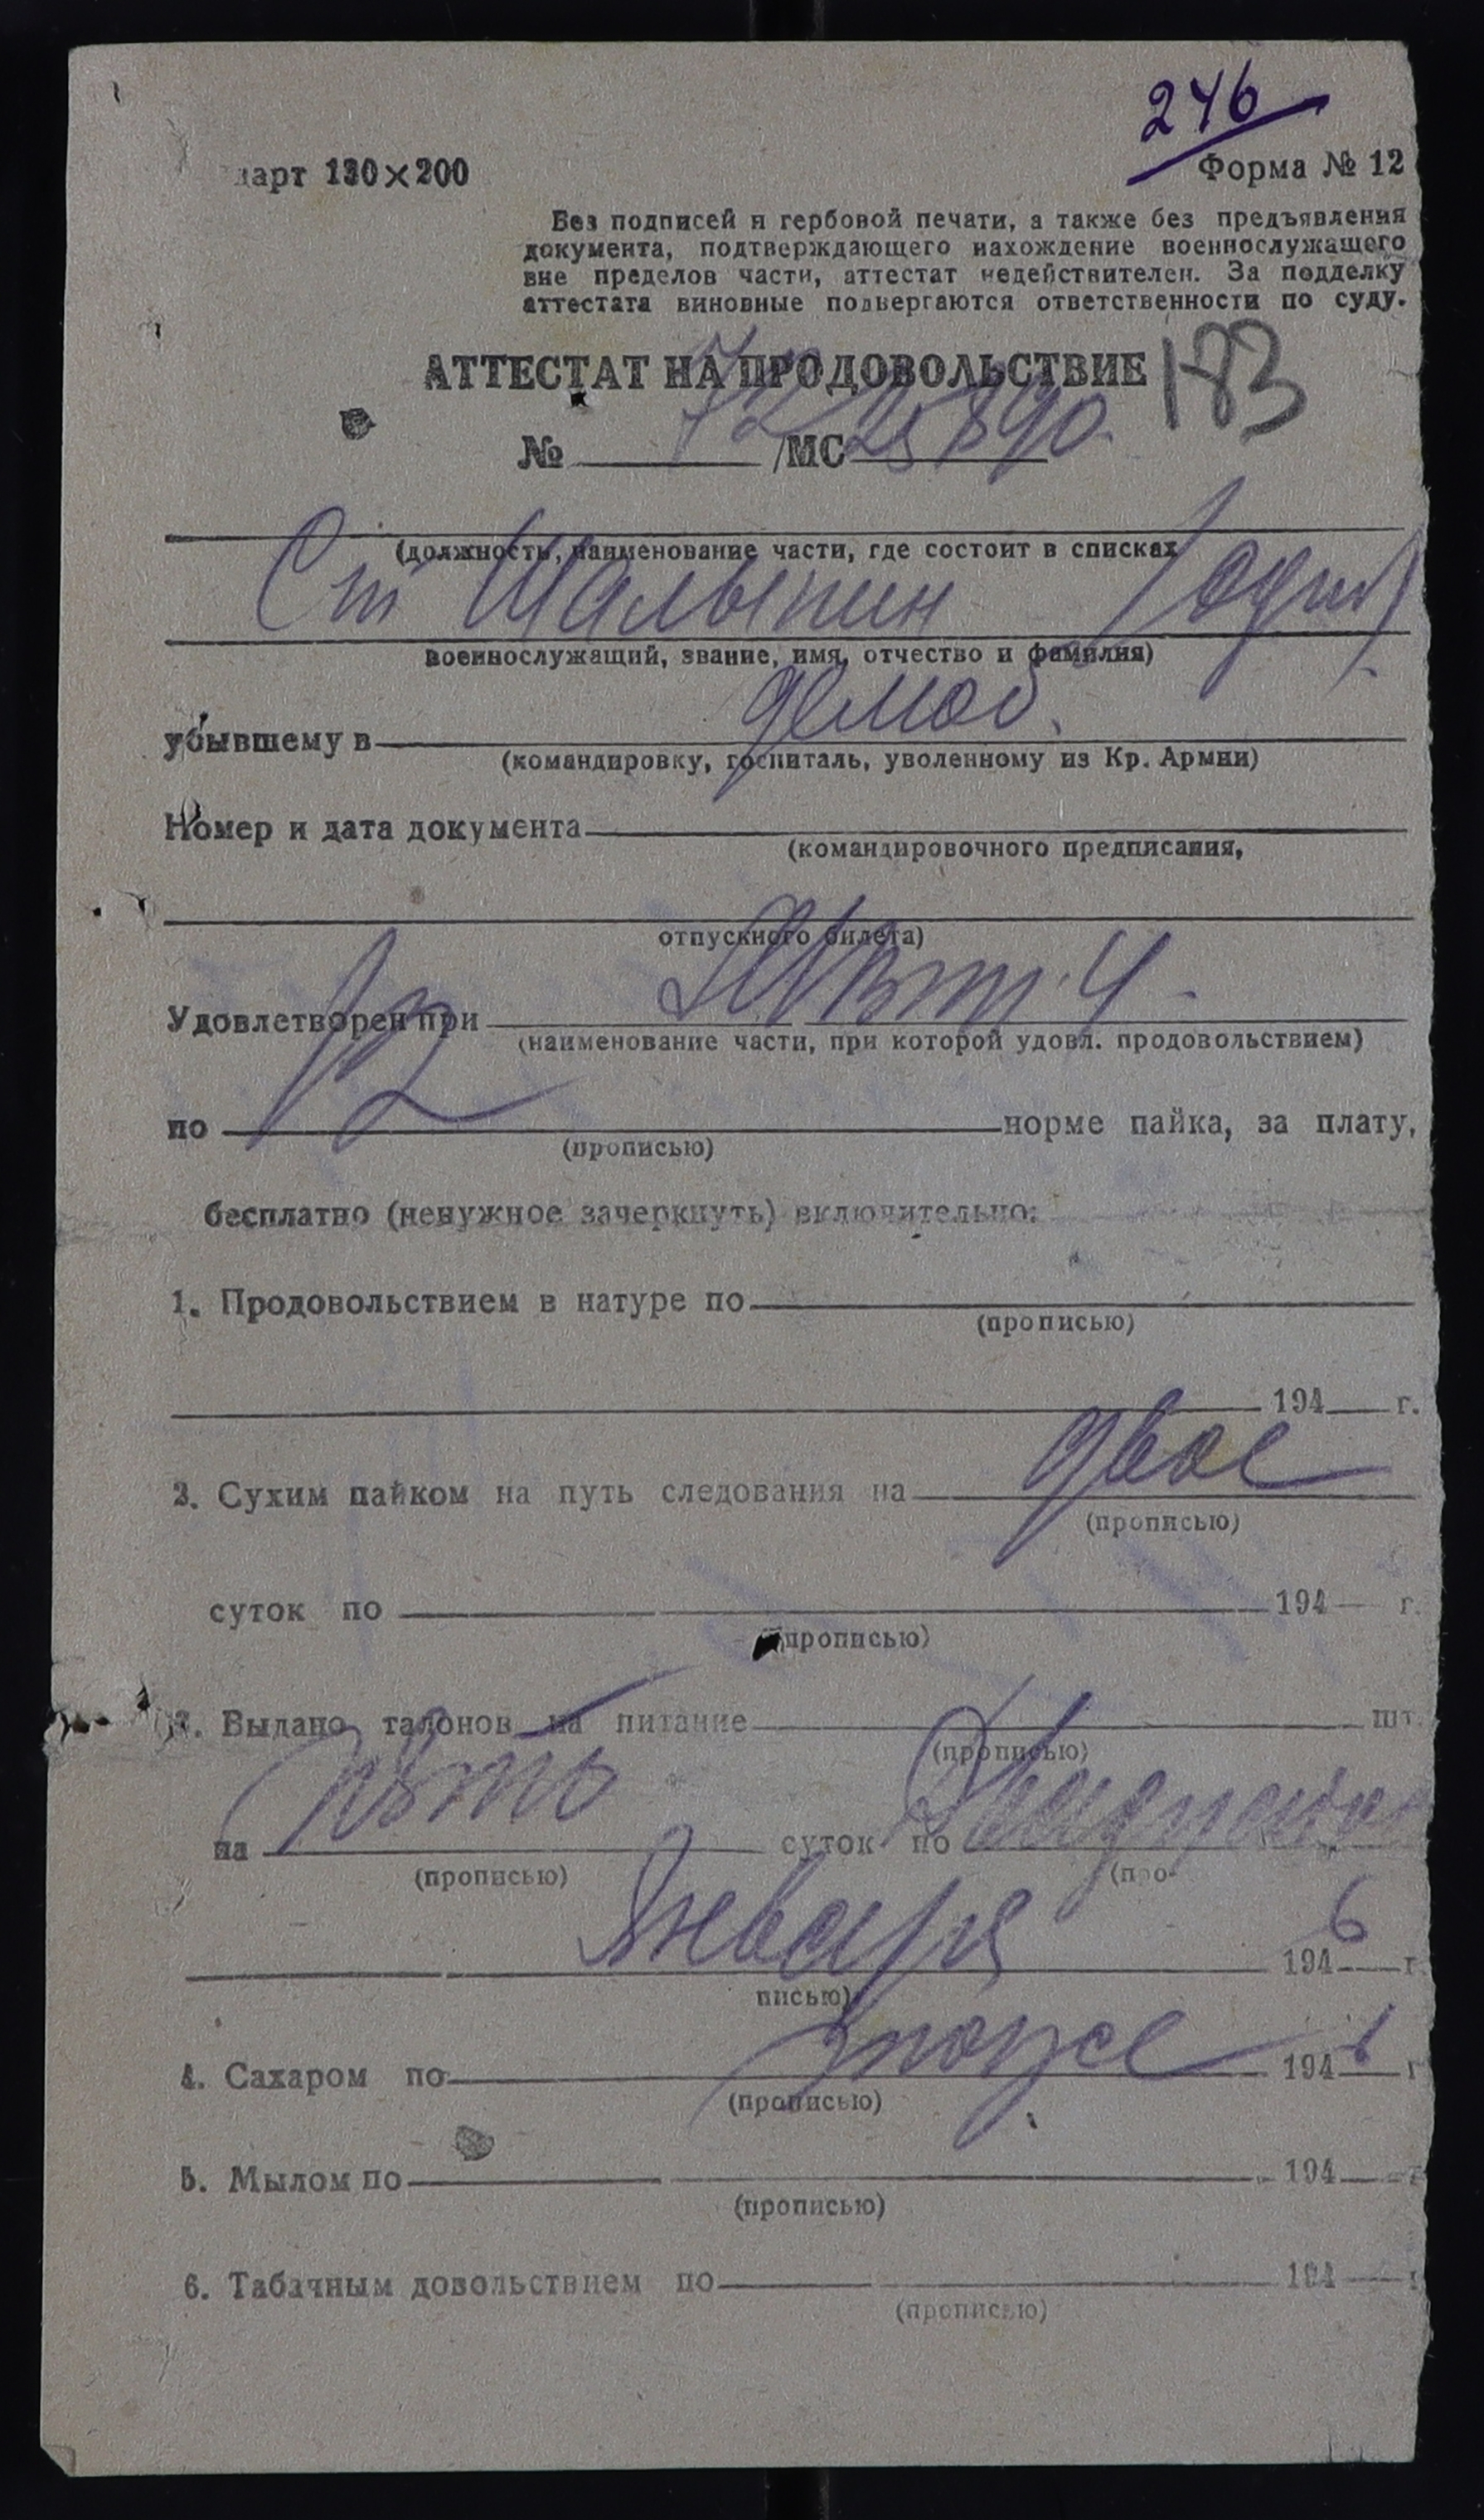 246
дарт 130×200
Форма № 12
Без подписей и гербовой печати, а также без предъявления
документа, подтверждающего нахождение военнослужащего
вне пределов части, аттестат недействителен. За подделку
аттестата виновные подвергаются ответственности по суду.
АТТЕСТАТ НА ПРОДОВОЛЬСТВИЕ 183
№ 72 /МС 25890
(должность, наименование части, где состоит в списках
Ст Шалыпин /один/
военнослужащий, звание, имя, отчество и фамилия)
убывшему в демоб.
(командировку, госпиталь, уволенному из Кр. Армии)
Номер и дата документа
(командировочного предписания,
отпускного билета)
Удовлетворен при
(наименование части, при которой удовл. продовольствием)
по 12 норме пайка, за плату,
(прописью)
бесплатно (ненужное зачеркнуть) включительно:
1. Продовольствием в натуре по
(прописью)
194 г.
2. Сухим пайком на путь следования на двое
(прописью)
суток по 194 г.
(прописью)
3. Выдано талонов на питание шт.
(прописью)
на пять суток по
(прописью) (про-
Января 1946 г.
писью)
4. Сахаром по 1946 г
(прописью)
5. Мылом по 194 г
(прописью)
6. Табачным довольствием по 194 г
(прописью)